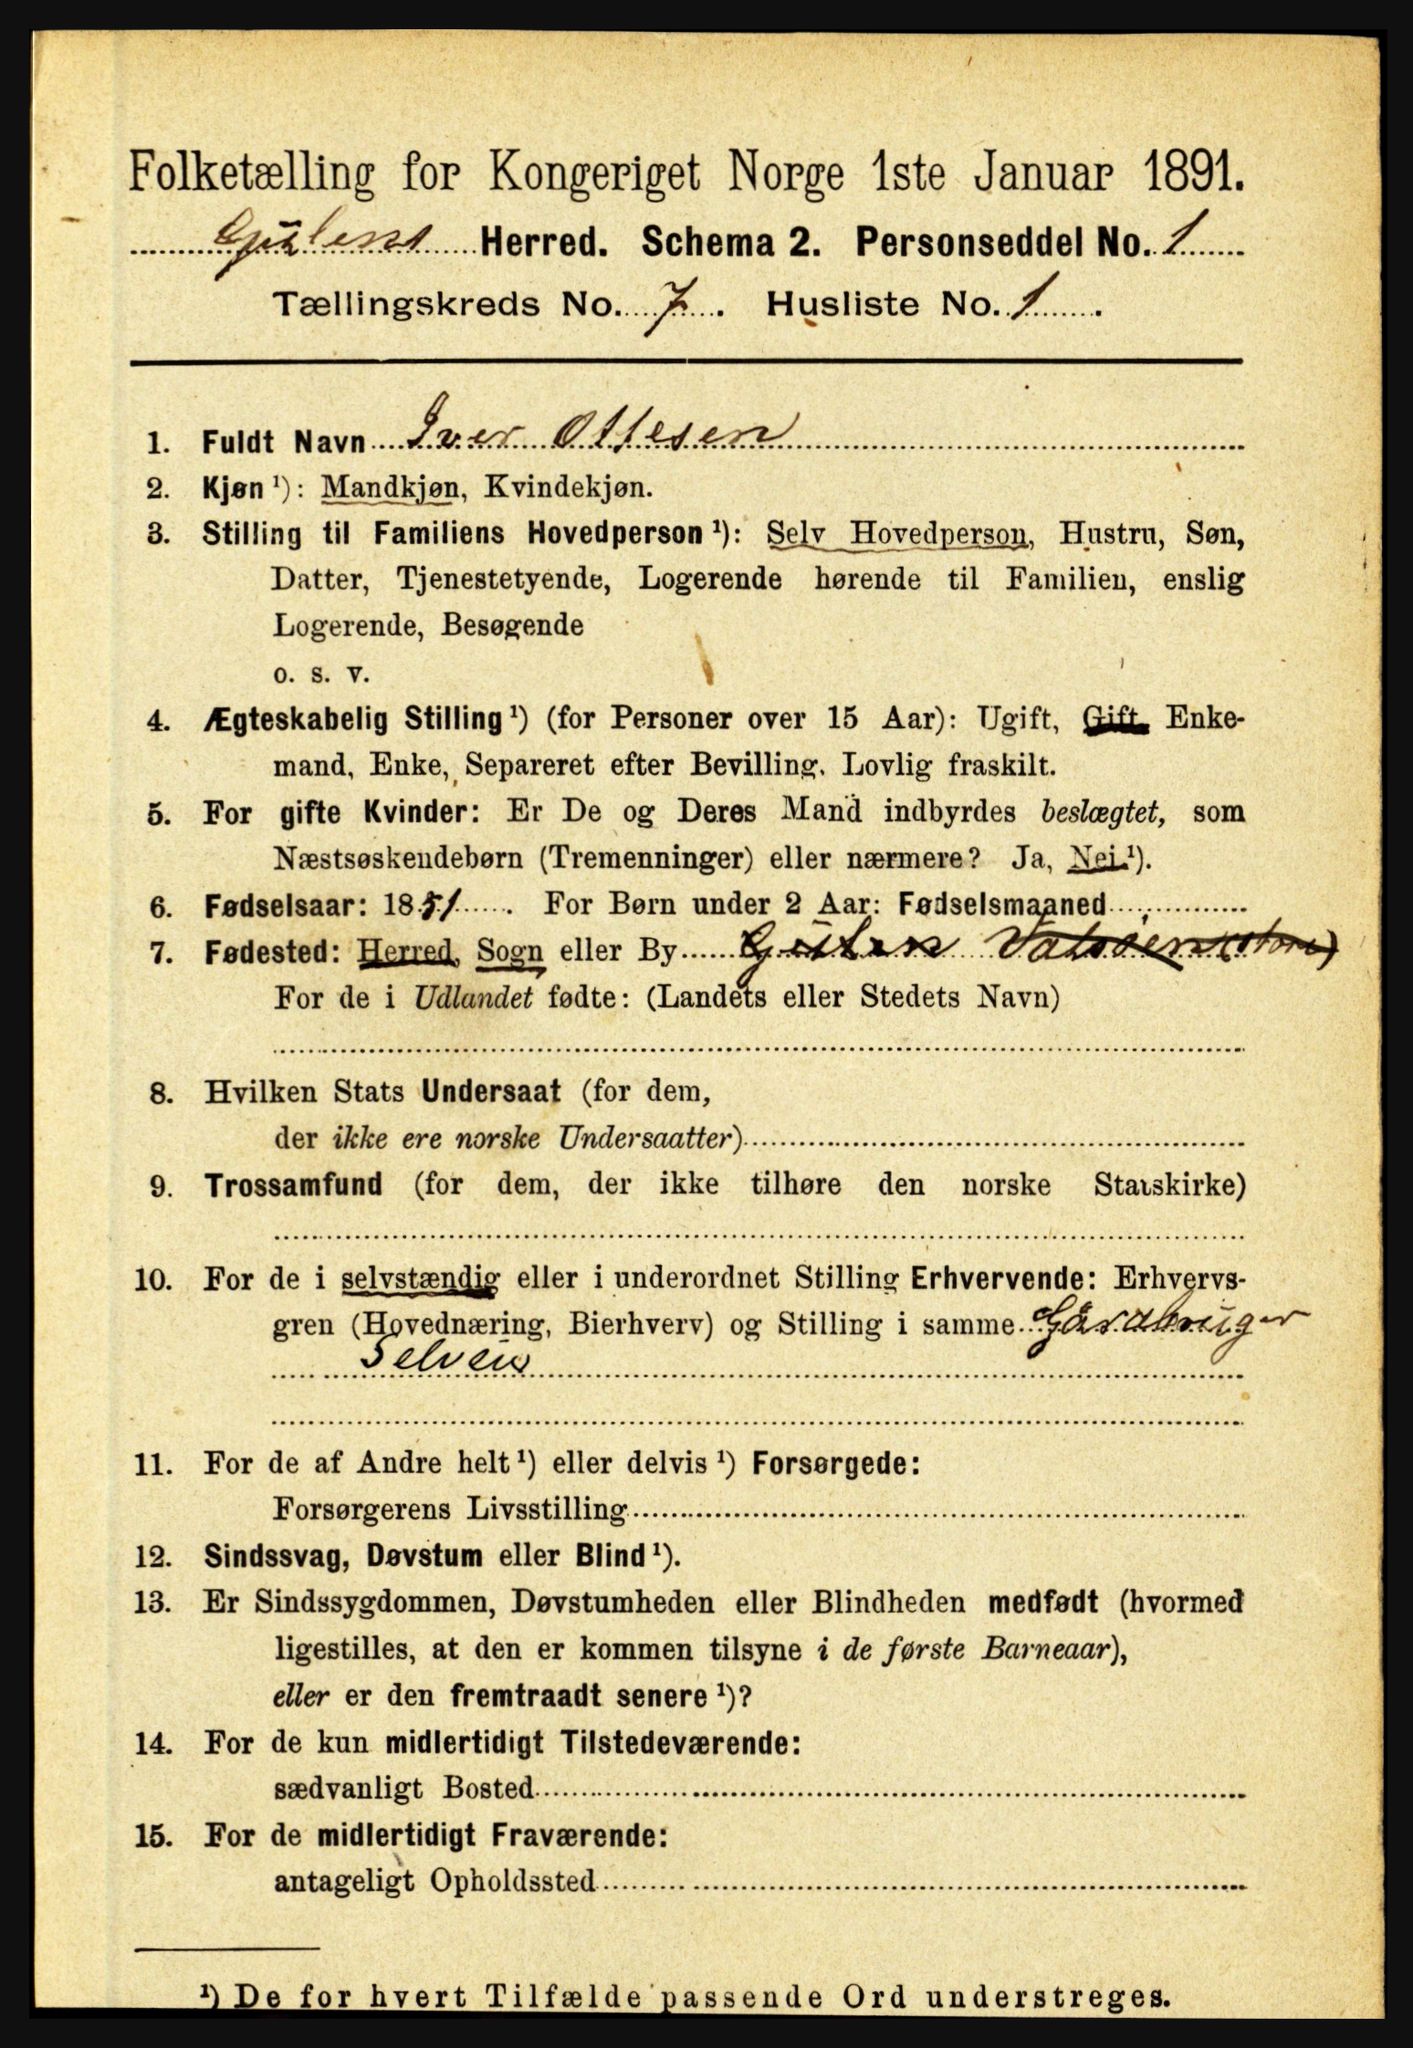 Folketælling for Kongeriget Norge 1ste Januar 1891.
Gulens Herred. Schema 2. Personseddel No. 1
Tællingskreds No. 7. Husliste No. 1.
1. Fuldt Navn Iver Ottesen
2. Kjøn ¹): Mandkjøn, Kvindekjøn.
3. Stilling til Familiens Hovedperson ¹): Selv Hovedperson, Hustru, Søn,
Datter, Tjenestetyende, Logerende hørende til Familien, enslig
Logerende, Besøgende
o. s. v.
4. Ægteskabelig Stilling ¹) (for Personer over 15 Aar): Ugift, Gift, Enke-
mand, Enke, Separeret efter Bevilling. Lovlig fraskilt.
5. For gifte Kvinder: Er De og Deres Mand indbyrdes beslægtet, som
Næstsøskendebørn (Tremenninger) eller nærmere? Ja, Nei. ¹).
6. Fødselsaar: 1851. For Børn under 2 Aar: Fødselsmaaned
7. Fødested: Herred, Sogn eller By Gulen
For de i Udlandet fødte: (Landets eller Stedets Navn)
8. Hvilken Stats Undersaat (for dem,
der ikke ere norske Undersaatter)
9. Trossamfund (for dem, der ikke tilhøre den norske Statskirke)
10. For de i selvstændig eller i underordnet Stilling Erhvervende: Erhvervs-
gren (Hovednæring, Bierhverv) og Stilling i samme Gårdbruger
Selveier
11. For de af Andre helt ¹) eller delvis ¹) Forsørgede:
Forsørgerens Livsstilling
12. Sindssvag, Døvstum eller Blind ¹).
13. Er Sindssygdommen, Døvstumheden eller Blindheden medfødt (hvormed
ligestilles, at den er kommen tilsyne i de første Barneaar),
eller er den fremtraadt senere ¹)?
14. For de kun midlertidigt Tilstedeværende:
sædvanligt Bosted
15. For de midlertidigt Fraværende:
antageligt Opholdssted
¹) De for hvert Tilfælde passende Ord understreges.